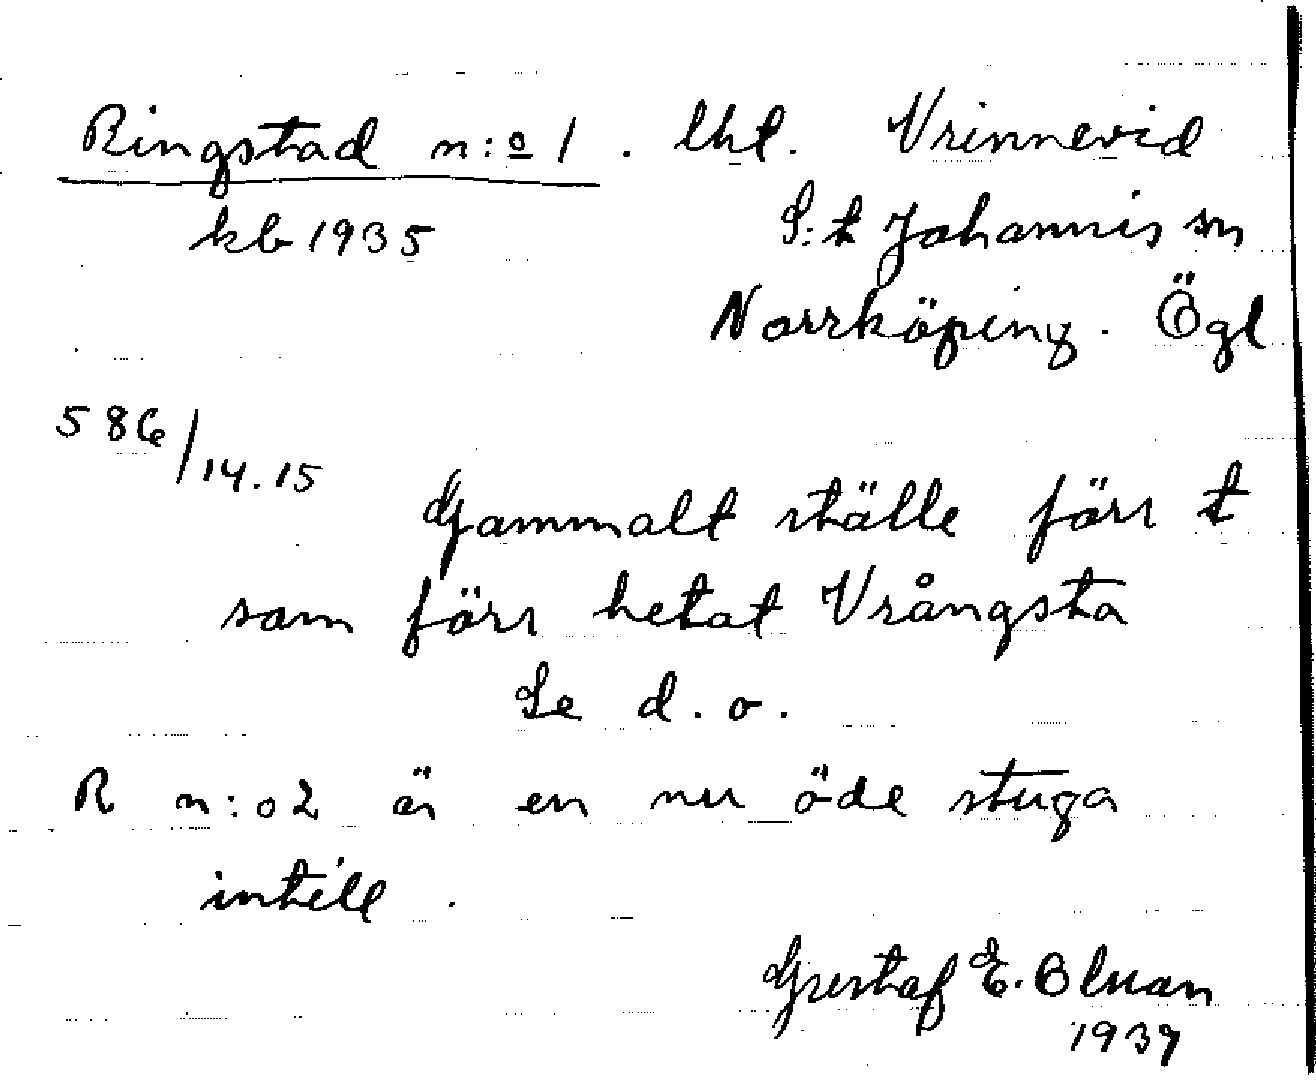 Ringstad n:o 1. lht. Vrinnevid
kb 1935 S:t Johannis sn
Norrköping. Ögl
586/14.15
Gammalt ställe förr t
som förr hetat Vrångsta
Se d.o.
R n:o 2 är en nu öde stuga
intill.
Gustaf E.
1939